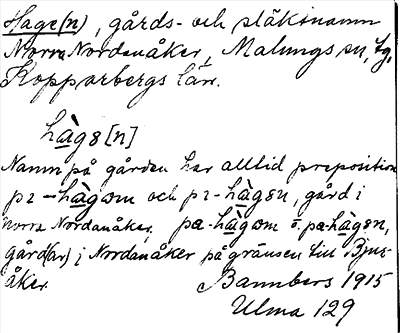 Hage(n), gårds- och släktnamn
Norra Nordanåker, Malungs sn, tg,
Kopparbergs län.
hàgə[n]
Namn på gården har alltid preposition
pɪ-hàgəm och pɪ-hàgən, gård i
norra Nordanåker, pa-hàgəm o. pa-hàgən,
gård(ar) i Nordanåker på gränsen till Bjur-
åker. Bannbers 1915
Ulma 129